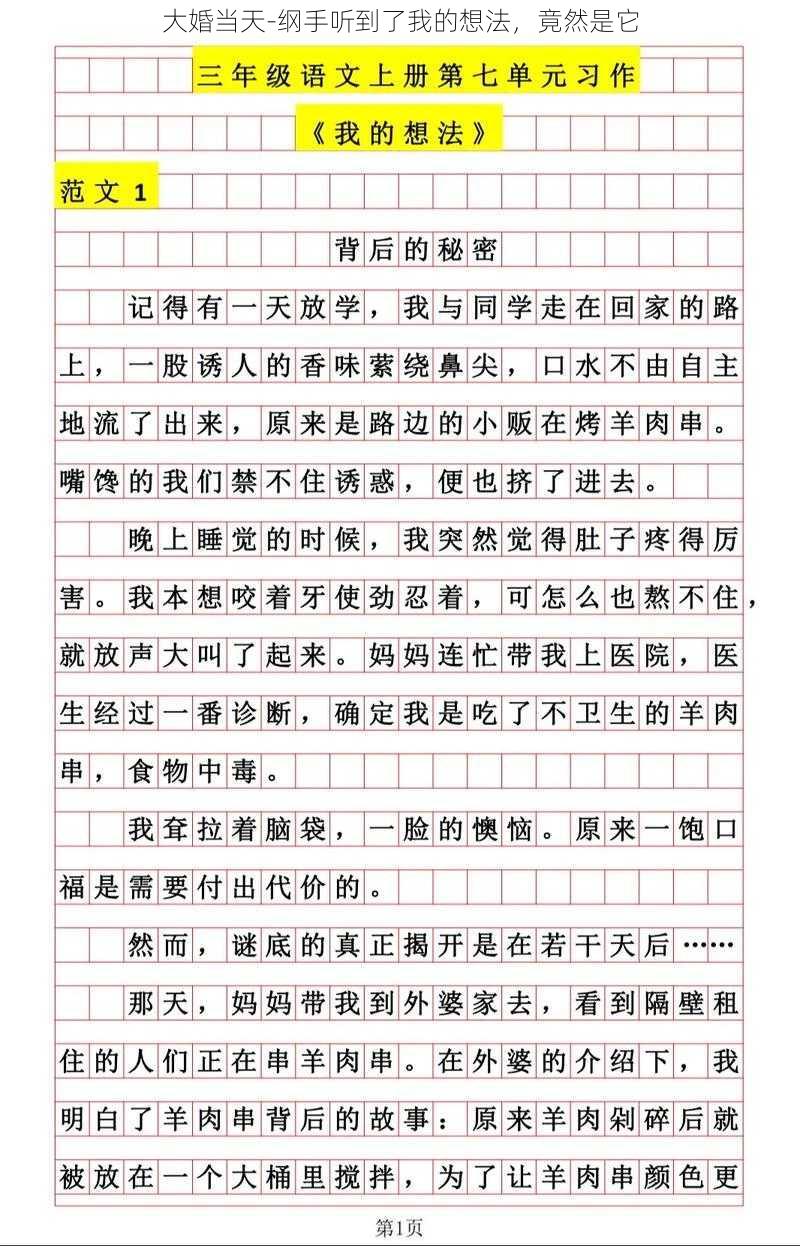 大婚当天-纲手听到了我的想法，竟然是它
三年级语文上册第七单元习作
《我的想法》
范文1
背后的秘密
记得有一天放学，我与同学走在回家的路
上，一股诱人的香味萦绕鼻尖，口水不由自主
地流了出来，原来是路边的小贩在烤羊肉串。
嘴馋的我们禁不住诱惑，便也挤了进去。
晚上睡觉的时候，我突然觉得肚子疼得厉
害。我本想咬着牙使劲忍着，可怎么也熬不住，
就放声大叫了起来。妈妈连忙带我上医院，医
生经过一番诊断，确定我是吃了不卫生的羊肉
串，食物中毒。
我耷拉着脑袋，一脸的懊恼。原来一饱口
福是需要付出代价的。
然而，谜底的真正揭开是在若干天后……
那天，妈妈带我到外婆家去，看到隔壁租
住的人们正在串羊肉串。在外婆的介绍下，我
明白了羊肉串背后的故事：原来羊肉剁碎后就
被放在一个大桶里搅拌，为了让羊肉串颜色更
第1页